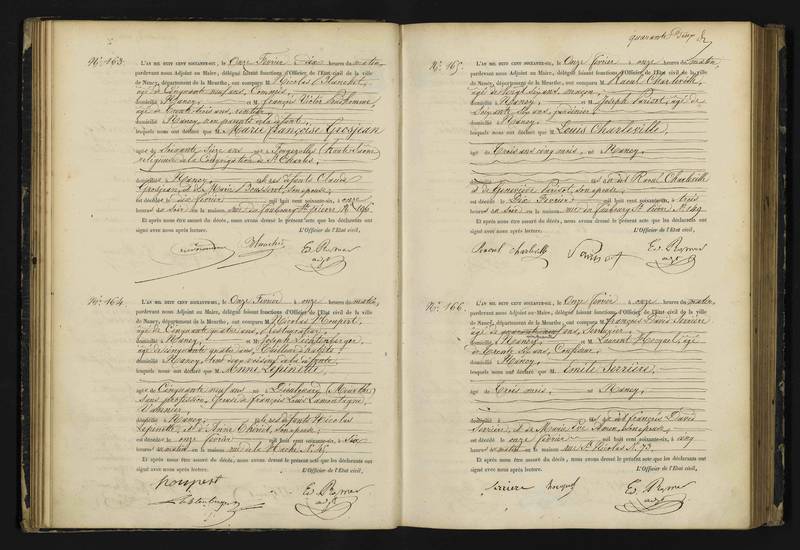 N° 163.
L'AN MIL HUIT CENT SOIXANTE-SIX, le Onze Février à dix heures du matin,
pardevant nous Adjoint au Maire, délégué faisant fonctions d'Officier de l'Etat civil de la ville
de Nancy, département de la Meurthe, ont comparu M. Nicolas Blanchet
âgé de Cinquante neuf ans, Commis,
domicilié à Nancy, et M. François Victor
âgé de trente trois ans, rentier
domicilié à Nancy, non parents de la défunte,
lesquels nous ont déclaré que M. Marie Françoise Grosjean
âgée de Soixante seize ans née à Fougerolles (Haute Saône)
religieuse de la Congrégation de St Charles,
domiciliée à Nancy, fille des défunts Claude
Grosjean, et de Marie Son épouse,
est décédée le dix février mil huit cent soixante-six, à onze
heures du soir en la maison rue du faubourg St pierre N° 196.
Et après nous être assuré du décès, nous avons dressé le présent acte que les déclarants ont
signé avec nous après lecture. L'Officier de l'Etat civil,
Blanchet
N° 164.
L'AN MIL HUIT CENT SOIXANTE-SIX, le Onze Février à onze heures du matin,
pardevant nous Adjoint au Maire, délégué faisant fonctions d'Officier de l'Etat civil de la ville
de Nancy, département de la Meurthe, ont comparu M. Nicolas Noupert,
âgé de Cinquante quatre ans,
domicilié à Nancy, et M. Joseph
âgé de cinquante quatre ans,
domicilié à Nancy, de la défunte,
lesquels nous ont déclaré que M. Anne Lepinette,
âgée de Cinquante neuf ans née à Dieulouard (Meurthe)
Sans profession, épouse de François Louis Lamontagne,
Vannier,
domiciliée à Nancy, fille des défunts Nicolas
Lepinette, et de Anne Son épouse,
est décédée le onze février mil huit cent soixante-six, à six
heures du matin en la maison rue de la Hache N. 45.
Et après nous être assuré du décès, nous avons dressé le présent acte que les déclarants ont
signé avec nous après lecture. L'Officier de l'Etat civil,
noupert
quarante
N° 165.
L'AN MIL HUIT CENT SOIXANTE-SIX, le Onze février à onze heures du matin,
pardevant nous Adjoint au Maire, délégué faisant fonctions d'Officier de l'Etat civil de la ville
de Nancy, département de la Meurthe, ont comparu M. Raoul Charleville,
âgé de Vingt Six ans, maçon,
domicilié à Nancy, et M. Joseph Parisot, âgé de
Soixante Six ans, jardinier,
domicilié à Nancy,
lesquels nous ont déclaré que M. Louis Charleville,
âgé de Trois ans cinq mois, né à Nancy,
fils de Raoul Charleville
et de Geneviève Parisot, Son épouse,
est décédé le Dix Février mil huit cent soixante-six, à trois
heures du Soir en la maison rue du faubourg St Pierre N° 149
Et après nous être assuré du décès, nous avons dressé le présent acte que les déclarants ont
signé avec nous après lecture. L'Officier de l'Etat civil,
Charleville
N° 166.
L'AN MIL HUIT CENT SOIXANTE-SIX, le Onze février à onze heures du matin,
pardevant nous Adjoint au Maire, délégué faisant fonctions d'Officier de l'Etat civil de la ville
de Nancy, département de la Meurthe, ont comparu M. François David Serrière
domicilié à Nancy, et M. Laurent Hocquel, âgé
de trente Six ans,
domicilié à Nancy,
lesquels nous ont déclaré que M. Emile Serrière,
âgé de Trois mois, né à Nancy,
fils de François David
Serrière, et de Marie Son épouse,
est décédé le onze février mil huit cent soixante-six, à cinq
heures du matin en la maison rue St Nicolas N. 73.
Et après nous être assuré du décès, nous avons dressé le présent acte que les déclarants ont
signé avec nous après lecture. L'Officier de l'Etat civil,
serriere